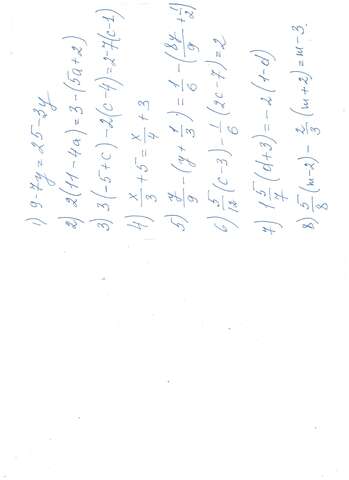 1) 9-7y=25-3y
2) 2(11-4a)=3-(5a+2)
3) 3(-5+c)-2(c-4)=2-7(c-1)
4) x/3+5=x/4+3
5) y/9-(y+1/3)=1/6-(8y/9+1/2)
6) 5/12(c-3)-1/6(2c-7)=2
7) 1 5/7(d+3)=-2(1-d)
8) 5/8(m-2)-2/3(m+2)=m-3.